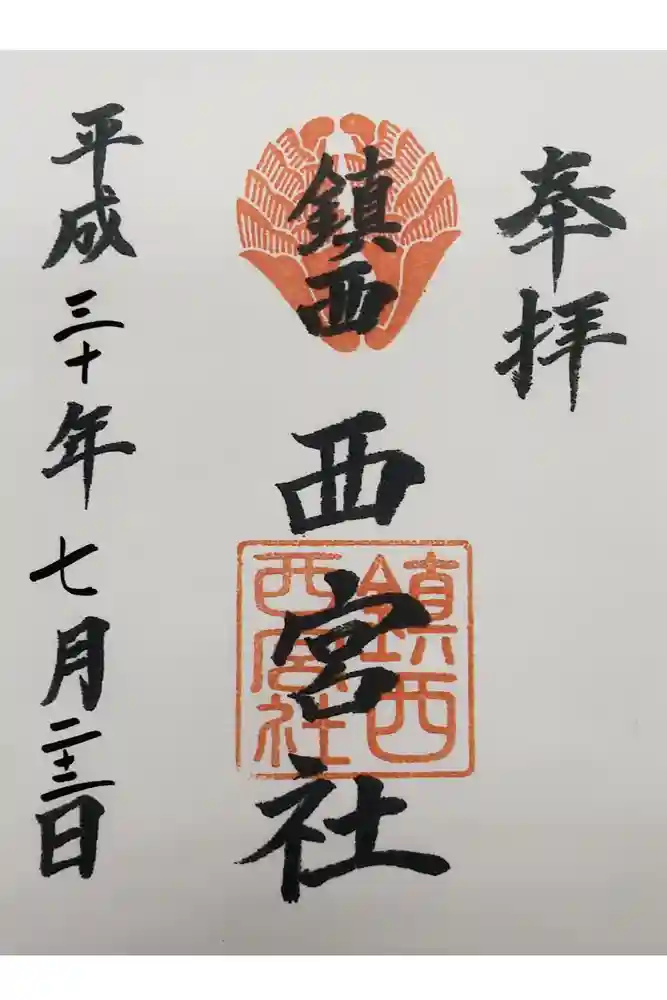 奉拝
鎮西
西宮社
鎮西
西宮社
平成三十年七月二十三日